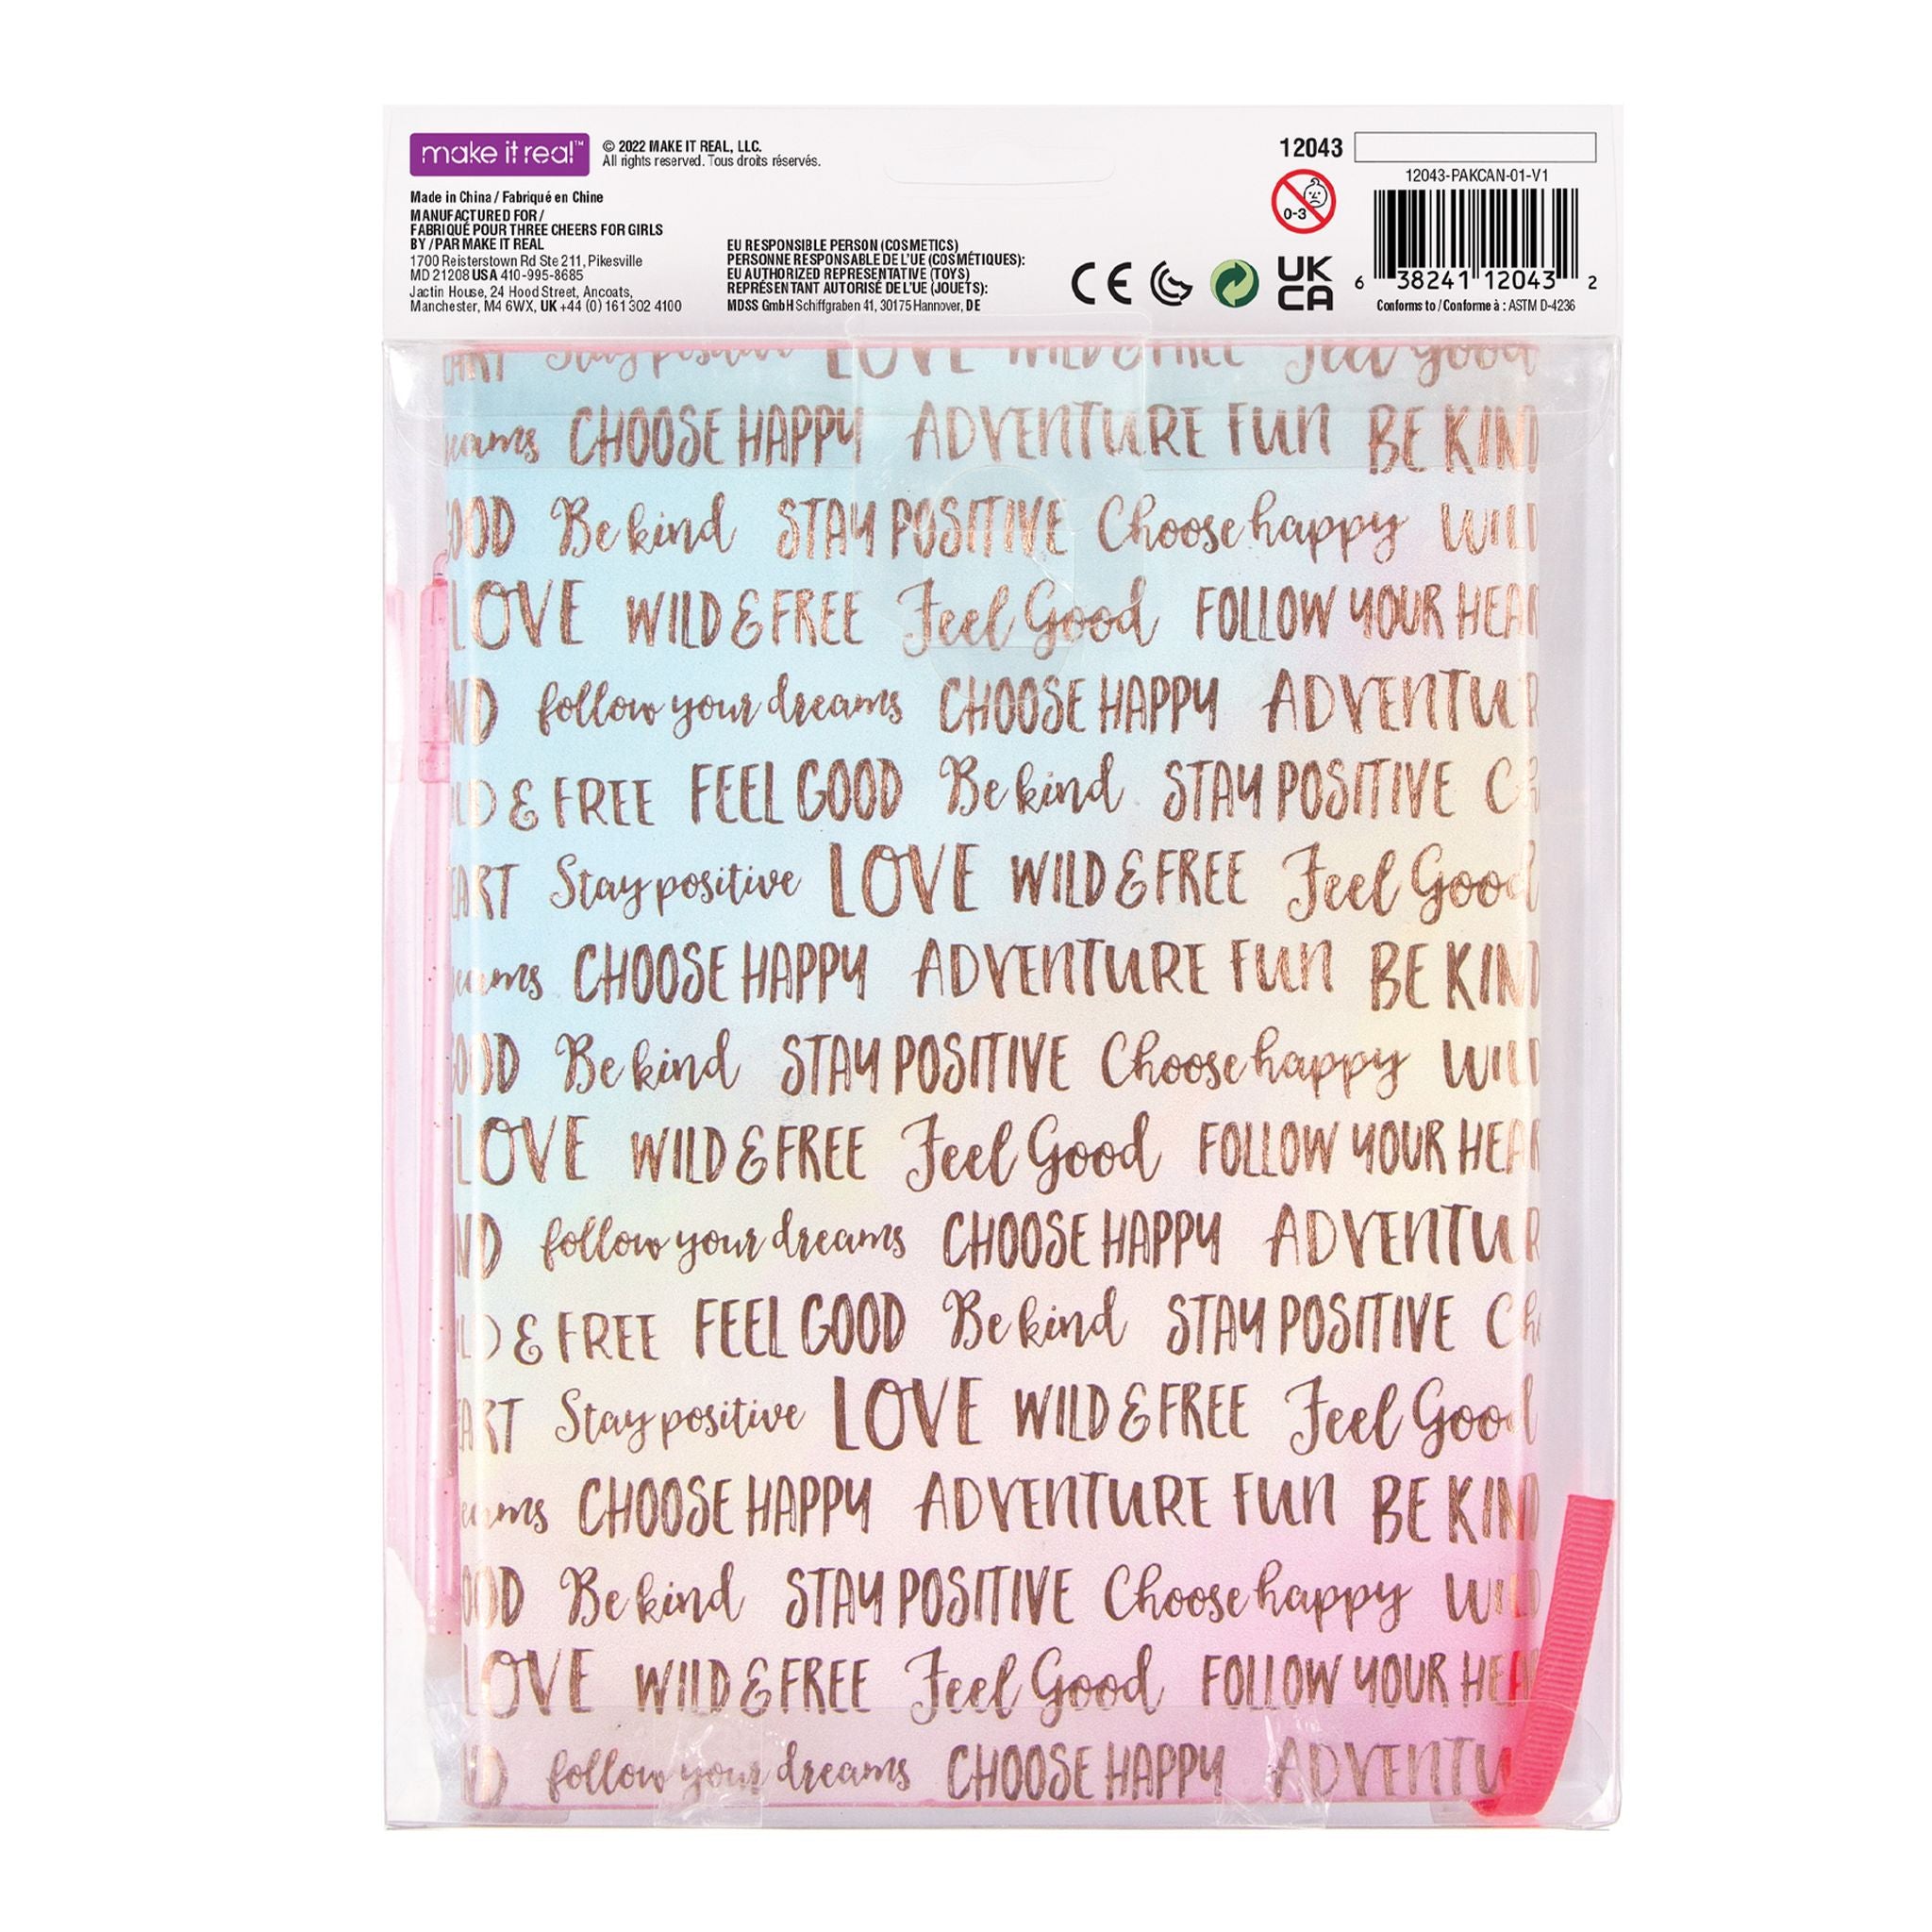 make it real™
© 2022 MAKE IT REAL, LLC.
All rights reserved. Tous droits réservés.
Made in China / Fabriqué en Chine
MANUFACTURED FOR /
FABRIQUÉ POUR THREE CHEERS FOR GIRLS
BY / PAR MAKE IT REAL
1700 Reisterstown Rd Ste 211, Pikesville
MD 21208 USA 410-995-8685
Jactin House, 24 Hood Street, Ancoats,
Manchester, M4 6WX, UK +44 (0) 161 302 4100
EU RESPONSIBLE PERSON (COSMETICS)
PERSONNE RESPONSABLE DE L'UE (COSMÉTIQUES):
EU AUTHORIZED REPRESENTATIVE (TOYS)
REPRÉSENTANT AUTORISÉ DE L'UE (JOUETS):
MDSS GmbH Schiffgraben 41, 30175 Hannover, DE
12043
0-3
CE
UK
CA
12043-PAKCAN-01-V1
6 38241 12043 2
Conforms to / Conforme à : ASTM D-4236
ART Stay positive LOVE WILD & FREE Feel Good
eams CHOOSE HAPPY ADVENTURE FUN BE KIND
OOD Be kind STAY POSITIVE Choose happy WILD
LOVE WILD & FREE Feel Good FOLLOW YOUR HEAR
ND follow your dreams CHOOSE HAPPY ADVENTUR
LD & FREE FEEL GOOD Be kind STAY POSITIVE Ch
EART Stay positive LOVE WILD & FREE Feel Good
eams CHOOSE HAPPY ADVENTURE FUN BE KIND
OOD Be kind STAY POSITIVE Choose happy WILD
LOVE WILD & FREE Feel Good FOLLOW YOUR HEAR
ND follow your dreams CHOOSE HAPPY ADVENTUR
LD & FREE FEEL GOOD Be kind STAY POSITIVE Cho
EART Stay positive LOVE WILD & FREE Feel Good
eams CHOOSE HAPPY ADVENTURE FUN BE KIND
OOD Be kind STAY POSITIVE Choose happy WILD
LOVE WILD & FREE Feel Good FOLLOW YOUR HEAR
ND follow your dreams CHOOSE HAPPY ADVENTU